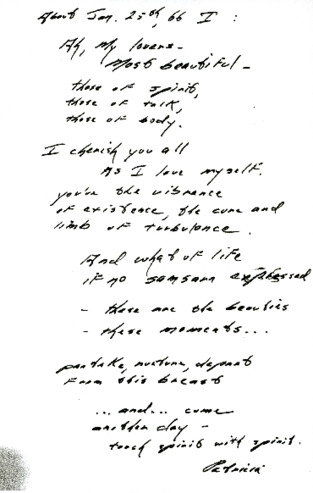 About Jan. 25th, 66 I :
Ah, my lovers -
Most beautiful -
those of spirit,
those of talk,
those of body.
I cherish you all
As I love myself.
you're the vibrance
of existence, the curve and
limb of turbulence.
And what of life
if no samsara expressed
- these are the beauties
- these moments...
partake, nurture, depart
From this breast
... and... come
another day -
touch spirit with spirit.
Patricia